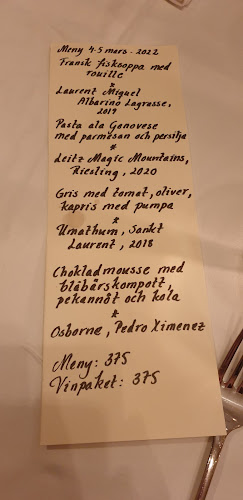 Meny 4-5 mars - 2022
Fransk fisksoppa med
rouille
*
Laurent Miguel
Albarino Lagrasse,
2019
Pasta ala Genovese
med parmesan och persilja
*
Leitz Magic Mountains,
Riesling, 2020
Gris med tomat, oliver,
kapris med pumpa
*
Umathum, Sankt
Laurent, 2018
Chokladmousse med
blåbärskompott,
pekannöt och kola
*
Osborne, Pedro Ximenez
Meny: 375
Vinpaket: 375